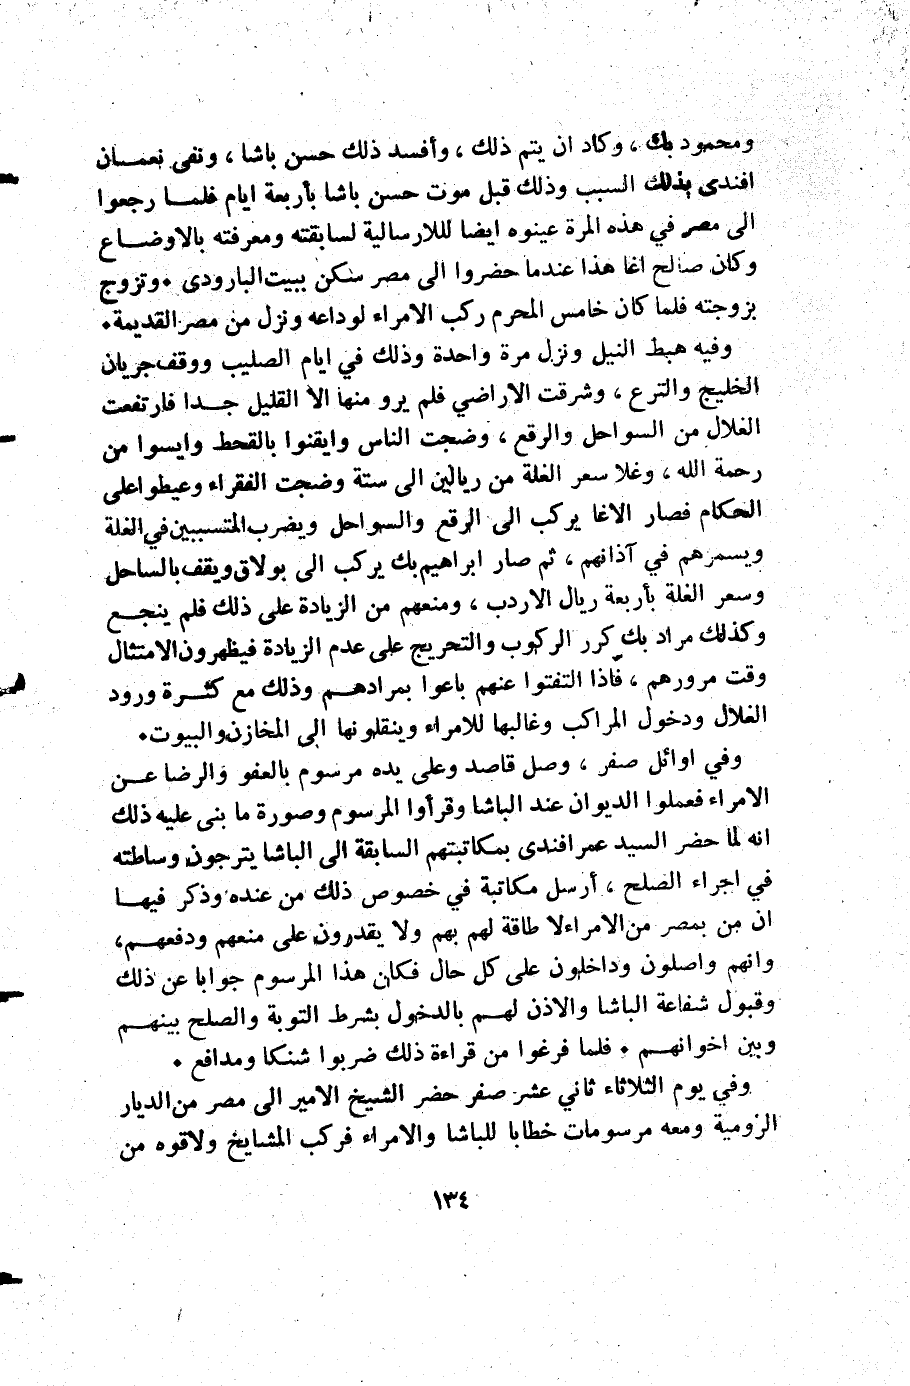 ومحمود بك ، وكاد ان يتم ذلك ، وأفسد ذلك حسن باشا ، ونفى نعمــان
افندى بذلك السبب وذلك قبل موت حسن باشا بأربعة ايام فلمــا رجعوا
الى مصر في هذه المرة عينوه ايضا لللارسالية لسابقته ومعرفته بالاوضــاع
وكان صالح اغا هذا عندما حضروا الى مصر سكن ببيت البارودى ٠ وتزوج
بزوجته فلما كان خامس المحرم ركب الامراء لوداعه ونزل من مصر القديمة٠
وفيه هبط النيل ونزل مرة واحدة وذلك في ايام الصليب ووقف جريان
الخليج والترع ، وشرقت الاراضي فلم يرو منها الا القليل جــدا فارتفعت
الغلال من السواحل والرقع ، وضجت الناس وايقنوا بالقحط وايسوا من
رحمة الله ، وغلا سعر الغلة من ريالين الى ستة وضجت الفقراء وعيطوا على
الحكام فصار الاغا يركب الى الرقع والسواحل ويضرب المتسببين في الغلة
ويسمرهم في آذانهم ، ثم صار ابراهيم بك يركب الى بولاق ويقف بالساحل
وسعر الغلة بأربعة ريال الاردب ، ومنعهم من الزيادة على ذلك فلم ينجــع
وكذلك مراد بك كرر الركوب والتحريج على عدم الزيادة فيظهرون الامتثال
وقت مرورهم ، فاذا التفتوا عنهم باعوا بمرادهــم وذلك مع كثــرة ورود
الغلال ودخول المراكب وغالبها للامراء وينقلونها الى المخازن والبيوت٠
وفي اوائل صفر ، وصل قاصد وعلى يده مرسوم بالعفو والرضا عــن
الامراء فعملوا الديوان عند الباشا وقرأوا المرسوم وصورة ما بنى عليه ذلك
انه لما حضر السيد عمر افندى بمكاتبتهم السابقة الى الباشا يترجون وساطته
في اجراء الصلح ، أرسل مكاتبة في خصوص ذلك من عنده وذكر فيهــا
ان من بمصر من الامراء لا طاقة لهم بهم ولا يقدرون على منعهم ودفعهــم،
وانهم واصلون وداخلون على كل حال فكان هذا المرسوم جوابا عن ذلك
وقبول شفاعة الباشا والاذن لهــم بالدخول بشرط التوبة والصلح بينهــم
وبين اخوانهــم ٠ فلما فرغوا من قراءة ذلك ضربوا شنكا ومدافع ٠
وفي يوم الثلاثاء ثاني عشر صفر حضر الشيخ الامير الى مصر من الديار
الرومية ومعه مرسومات خطابا للباشا والامراء فركب المشايخ ولاقوه من
١٣٤